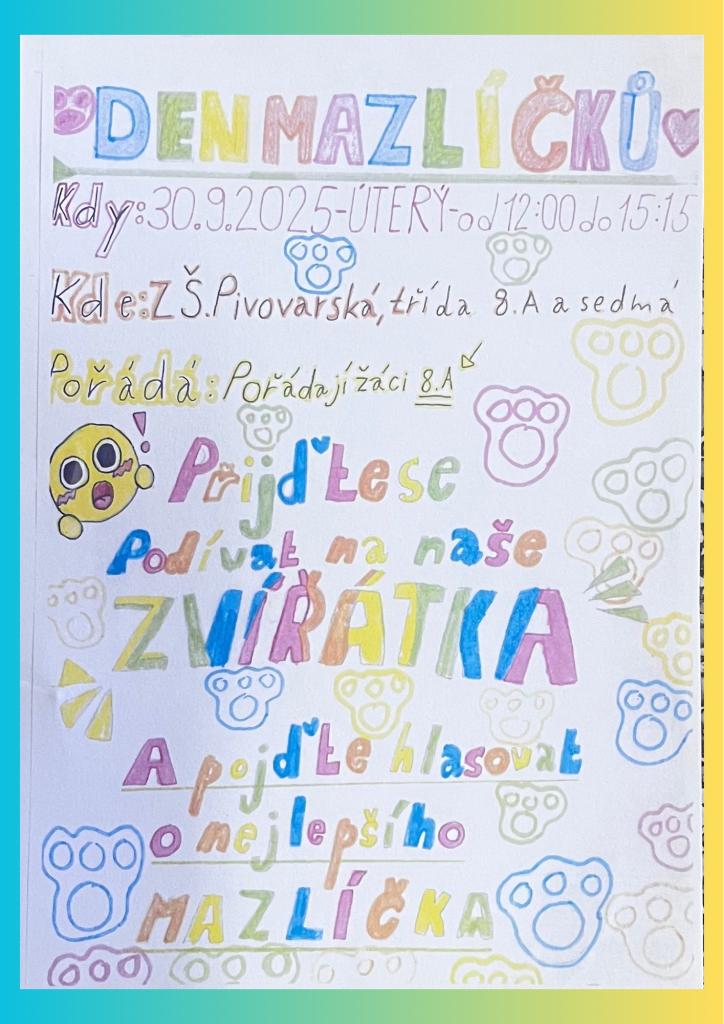 DEN MAZLÍČKŮ
Kdy: 30.9.2025-ÚTERÝ-od 12:00 do 15:15
Kde: ZŠ. Pivovarská, třída 8.A a sedmá
Pořádá: Pořádají žáci 8.A
Přijďte se
Podívat na naše
ZVÍŘÁTKA
A pojďte hlasovat
o nejlepšího
MAZLÍČKA